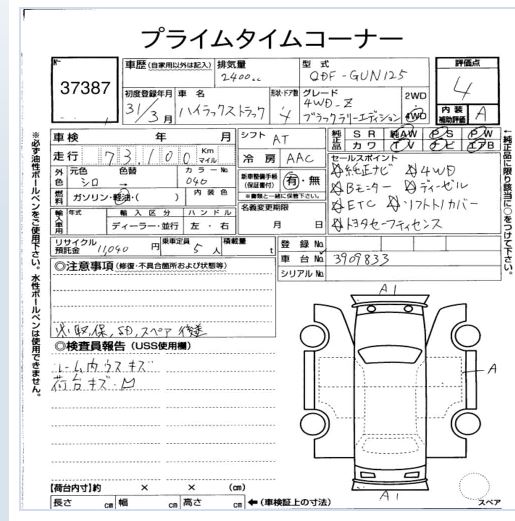 プライムタイムコーナー
37387
車歴 (自家用以外は記入)
排気量 2400cc
型式 QDF-GUN125
評価点 4
初度登録年月 31/3月
車名 ハイラックストラック
形状・ドア数 4
グレード 4WD-Z
ブラックラリーエディション
2WD
4WD
内装補助評価 A
車検 年 月
シフト AT
純正品 SR 純AW PS PW
カワ TV ナビ エアB
走行 73,100 Km マイル
冷房 AAC
セールスポイント
純正ナビ 4WD
Bモニター ディーゼル
ETC ソフトトノカバー
トヨタセーフティセンス
外色 元色 シロ 色替 カラーNo 040
新車整備手帳 (保証書付) 有・無
※書類と一緒に保管下さい。
燃料 ガソリン・軽油・( ) 内装色
名義変更期限 月 日
輸入車用 年式 輸入区分 ハンドル
ディーラー・並行 左・右
リサイクル預託金 11,040円
乗車定員 5人
積載量 t
登録No.
車台No. 3909833
シリアルNo.
◎注意事項 (修復・不具合箇所および状態等)
※取、保、SD、スペア 後送
◎検査員報告 (USS使用欄)
ルーム内ウスキズ
荷台キズ・凹
A1
A
A1
スペア
【荷台内寸】約 × × (cm)
長さ cm 幅 cm 高さ cm ←(車検証上の寸法)
※必ず油性ボールペンをご使用下さい。水性ボールペンは使用できません。
←純正品に限り該当に○をつけて下さい。